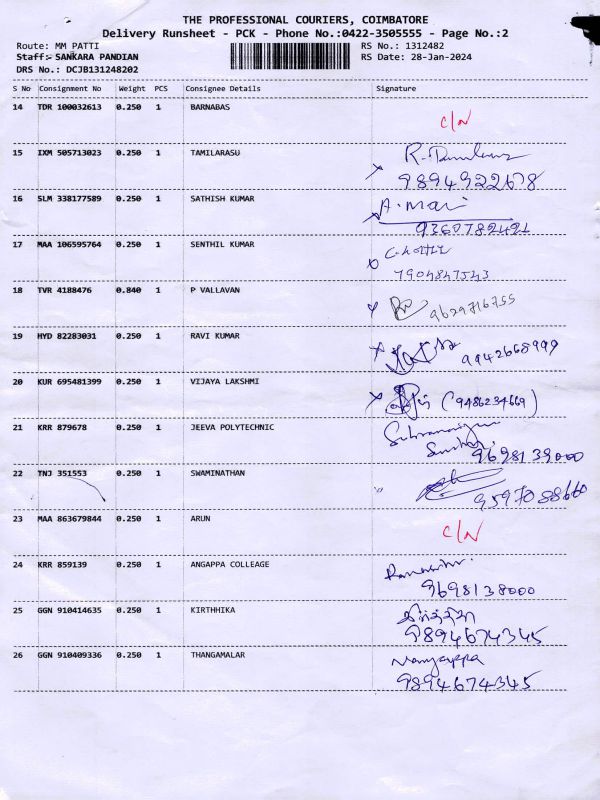 THE PROFESSIONAL COURIERS, COIMBATORE
Delivery Runsheet - PCK - Phone No.:0422-3505555 - Page No.:2
Route: MM PATTI RS No.: 1312482
Staff: SANKARA PANDIAN RS Date: 28-Jan-2024
DRS No.: DCJB131248202
S No Consignment No Weight PCS Consignee Details Signature
14 TDR 100032613 0.250 1 BARNABAS
C/N
15 IXM 505713023 0.250 1 TAMILARASU
9894922678
16 SLM 338177589 0.250 1 SATHISH KUMAR A. Mari
9360782421
17 MAA 106595764 0.250 1 SENTHIL KUMAR
7904847543
18 TVR 4188476 0.840 1 P VALLAVAN
9629716755
19 HYD 82283031 0.250 1 RAVI KUMAR
9942668999
20 KUR 695481399 0.250 1 VIJAYA LAKSHMI
(9486234669)
21 KRR 879678 0.250 1 JEEVA POLYTECHNIC
9698139000
22 TNJ 351553 0.250 1 SWAMINATHAN
9597088660
23 MAA 863679844 0.250 1 ARUN
C/N
24 KRR 859139 0.250 1 ANGAPPA COLLEAGE
9698138000
25 GGN 910414635 0.250 1 KIRTHHIKA கிர்த்திகா
9894674345
26 GGN 910409336 0.250 1 THANGAMALAR Nanjappa
9894674345